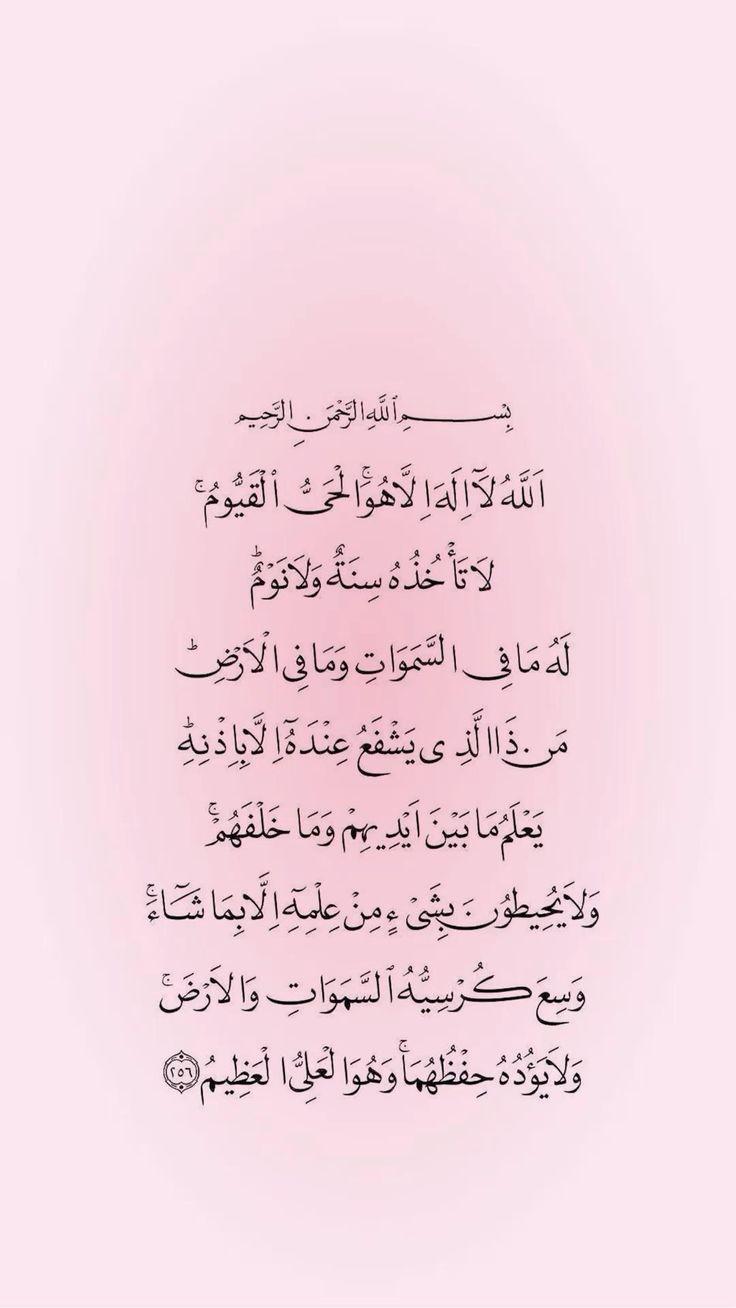 بِسْمِ ٱللَّهِ الرَّحْمَنِ الرَّحِيمِ
اَللَّهُ لَآ اِلَهَ اِلَّا هُوَۚ اَلْحَىُّ ٱلْقَيُّومُۚ
لَا تَأْخُذُهُ سِنَةٌ وَلَا نَوْمٌؕ
لَهُ مَا فِى السَّمَوَاتِ وَمَا فِى الْاَرْضِؕ
مَن ذَا الَّذِى يَشْفَعُ عِنْدَهُٓ اِلَّا بِاِذْنِهِؕ
يَعْلَمُ مَا بَيْنَ اَيْدِيهِمْ وَمَا خَلْفَهُمْۚ
وَلَا يُحِيطُونَ بِشَىْءٍ مِنْ عِلْمِهِٓ اِلَّا بِمَا شَآءَۚ
وَسِعَ كُرْسِيُّهُ ٱلسَّمَوَاتِ وَالْاَرْضَۚ
وَلَا يَؤُدُهُ حِفْظُهُمَاۚ وَهُوَ الْعَلِىُّ الْعَظِيمُ ٢٥٦